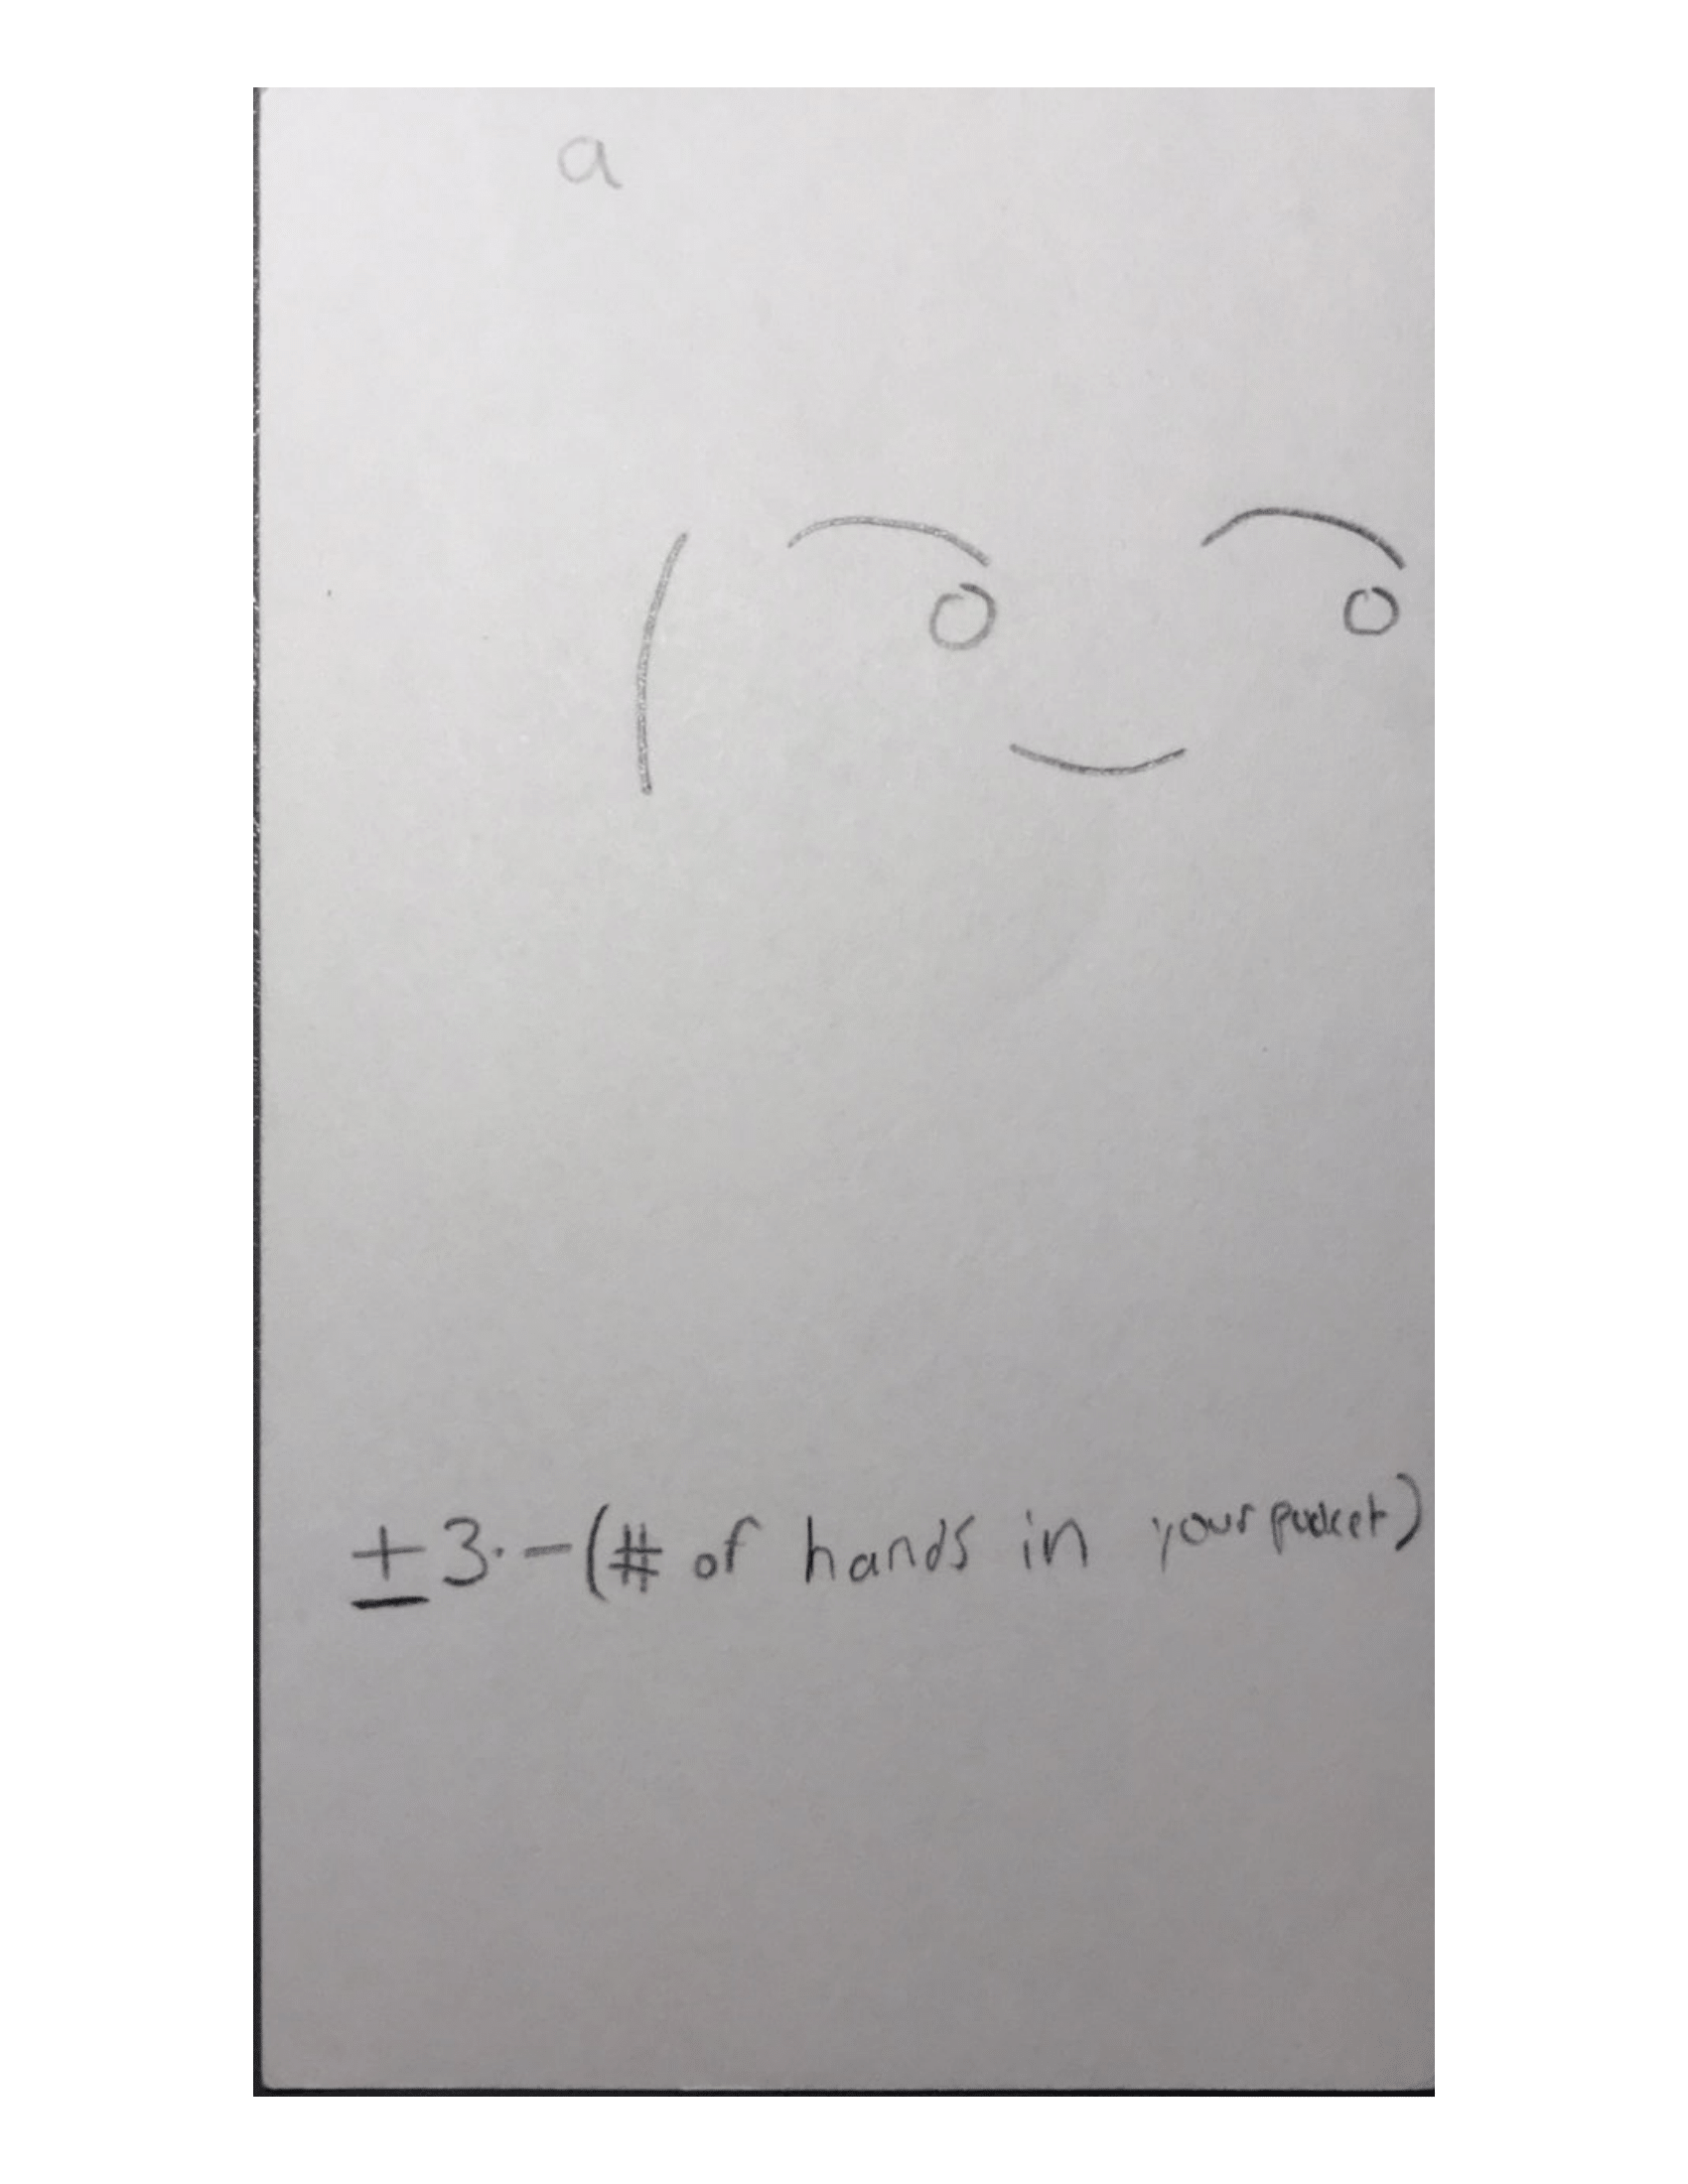 a
( ͡o ͜ ͡o
±3·-(# of hands in your pocket)